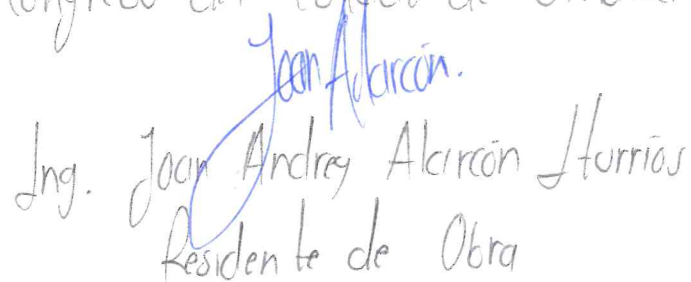 Joan Alarcón.
Ing. Joan Andrey Alarcón Iturrios
Residente de Obra